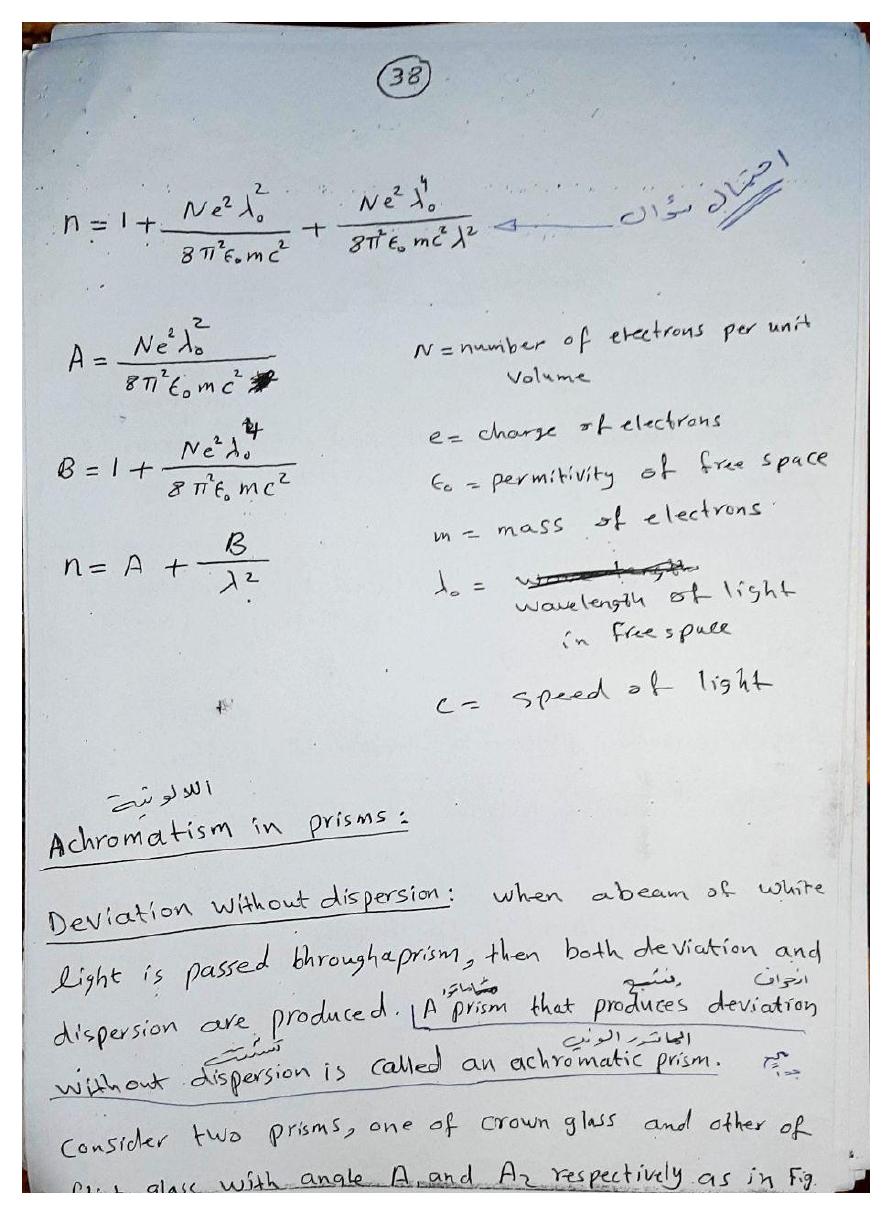 38
n = 1 + Ne²λ₀² / 8π²ϵ₀mc² + Ne²λ₀⁴ / 8π²ϵ₀mc²λ²
احتمال سؤال
A = Ne²λ₀² / 8π²ϵ₀mc²
N = number of electrons per unit
volume
B = 1 + Ne²λ₀⁴ / 8π²ϵ₀mc²
e = charge of electrons
ϵ₀ = permitivity of free space
m = mass of electrons
n = A + B / λ²
λ₀ =
wavelength of light
in free space
c = speed of light
اللالونية
Achromatism in prisms:
Deviation without dispersion: when a beam of white
light is passed through a prism, then both deviation and
انحراف
dispersion are produced. A prism that produces deviation
تشتت
without dispersion is called an achromatic prism.
Consider two prisms, one of crown glass and other of
glass with angle A₁ and A₂ respectively as in Fig.